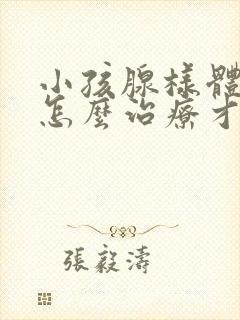 小孩腺樣體
怎麼治療才
張毅濤